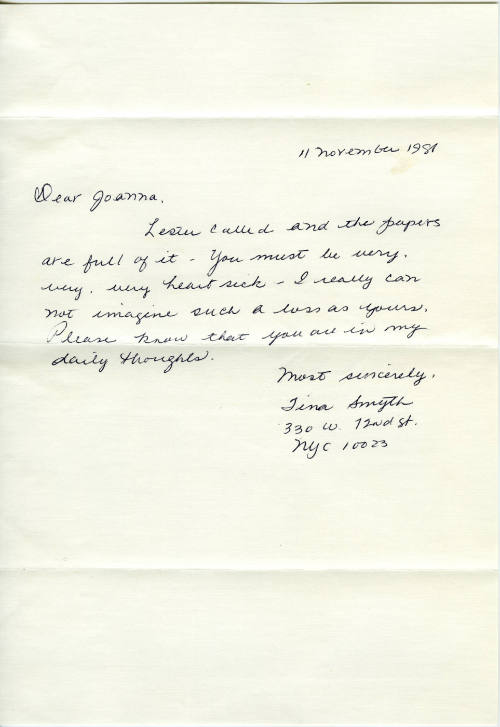 11 November 1981
Dear Joanna,
Lester called and the papers
are full of it - You must be very,
very, very heart sick - I really can
not imagine such a loss as yours.
Please know that you are in my
daily thoughts.
Most sincerely,
Tina Smyth
330 W. 72nd St.
NYC 10023